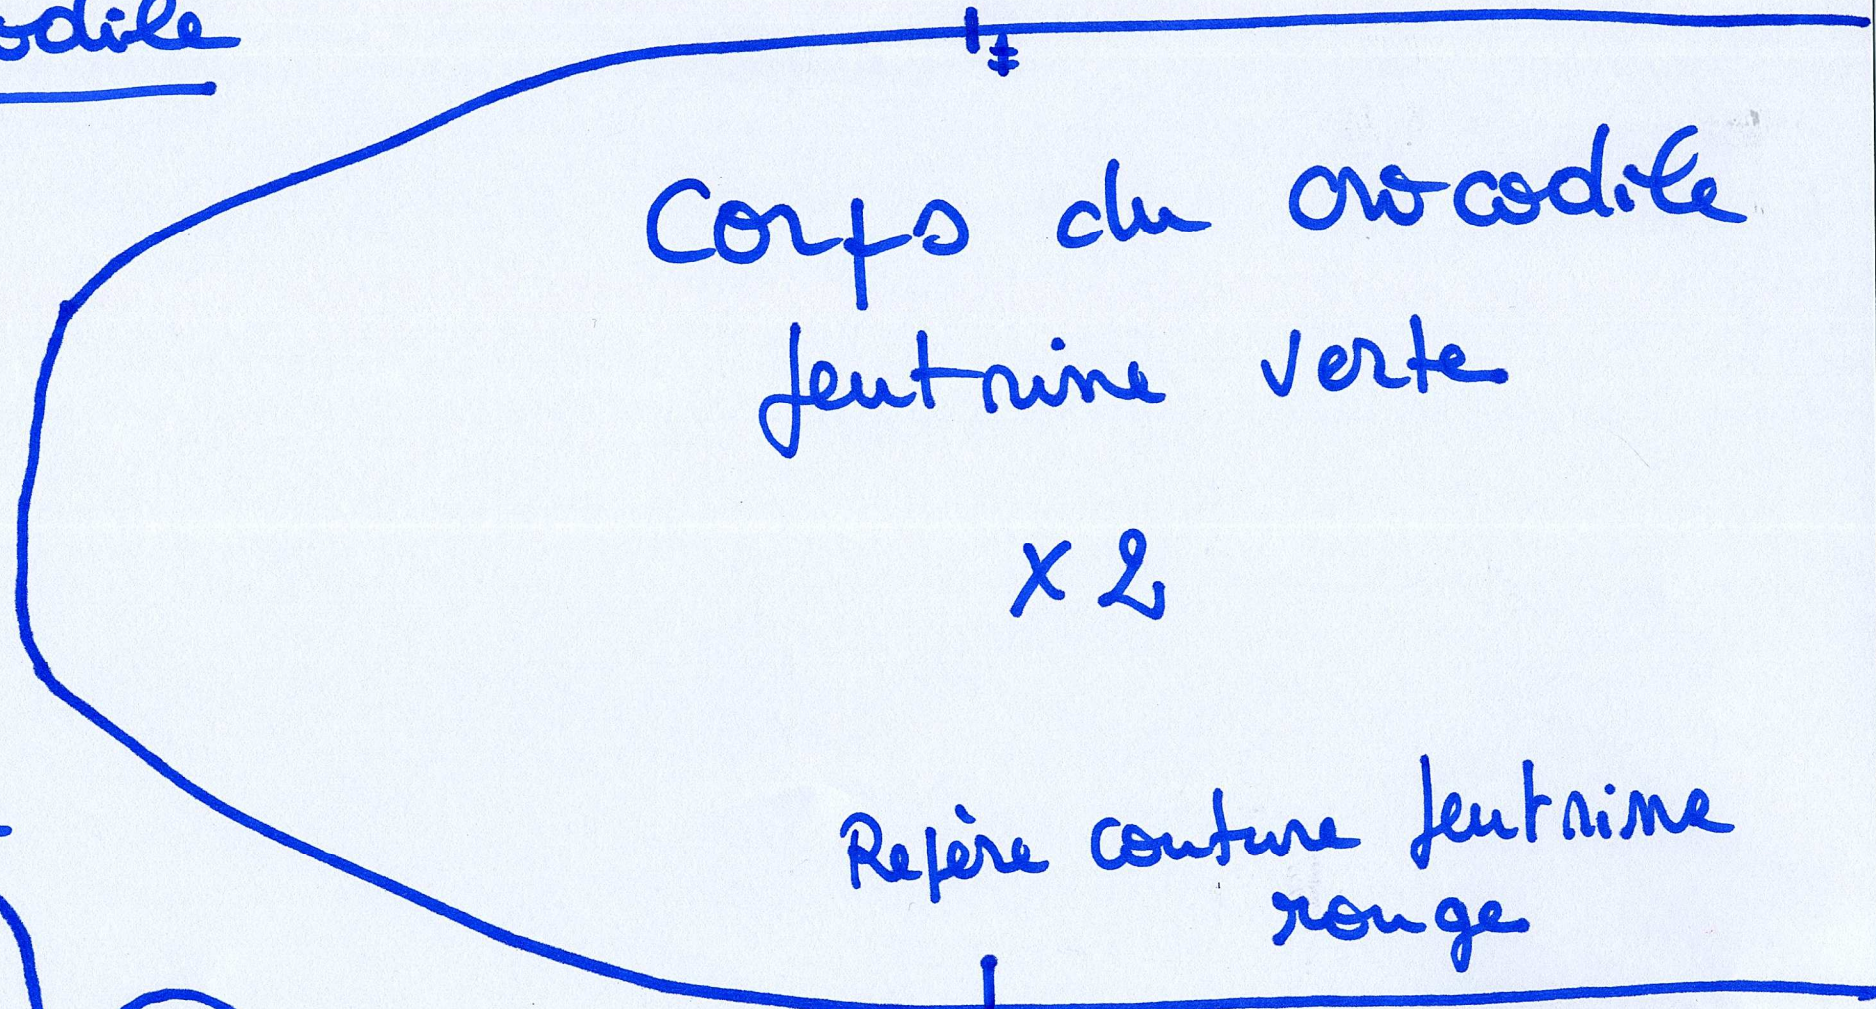 odile
Corps du crocodile
feutrine verte
x 2
Repère couture feutrine
rouge